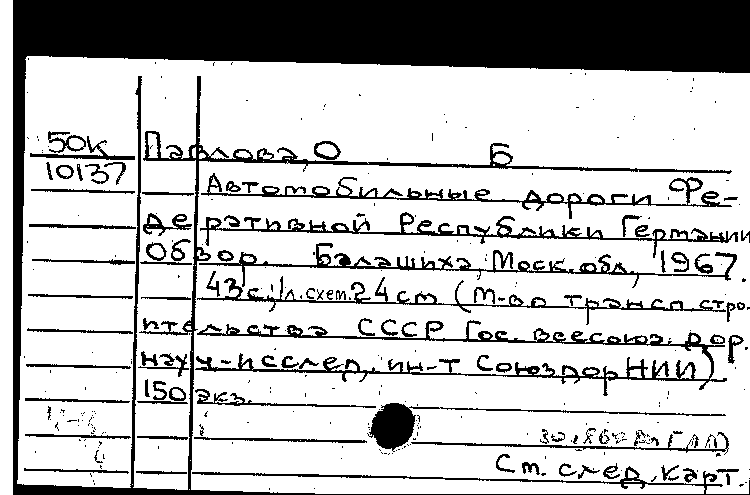 50к Павлова, О Б
10137
Автомобильные дороги Фе-
деративной Республики Германии
Обзор. Балашиха, Моск. обл., 1967.
43с.; 1л.схем. 24см (М-во трансп. строи-
тельства СССР Гос. всесоюз. дор.
науч-исслед. ин-т СоюздорНИИ)
150 экз.
См. след. карт.